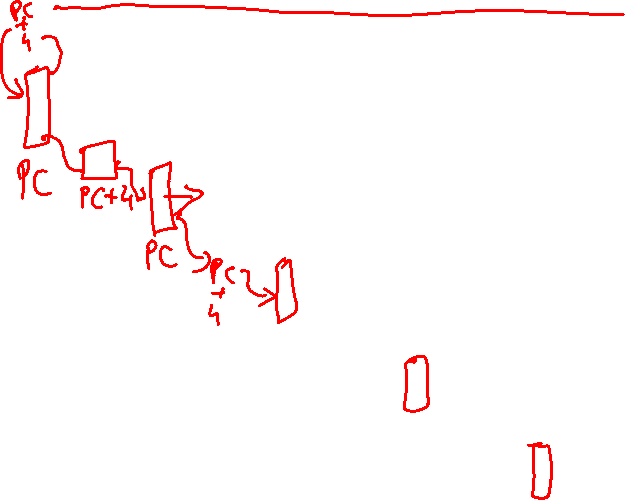 PC
+
4
PC
PC+4
PC
PC
+
4